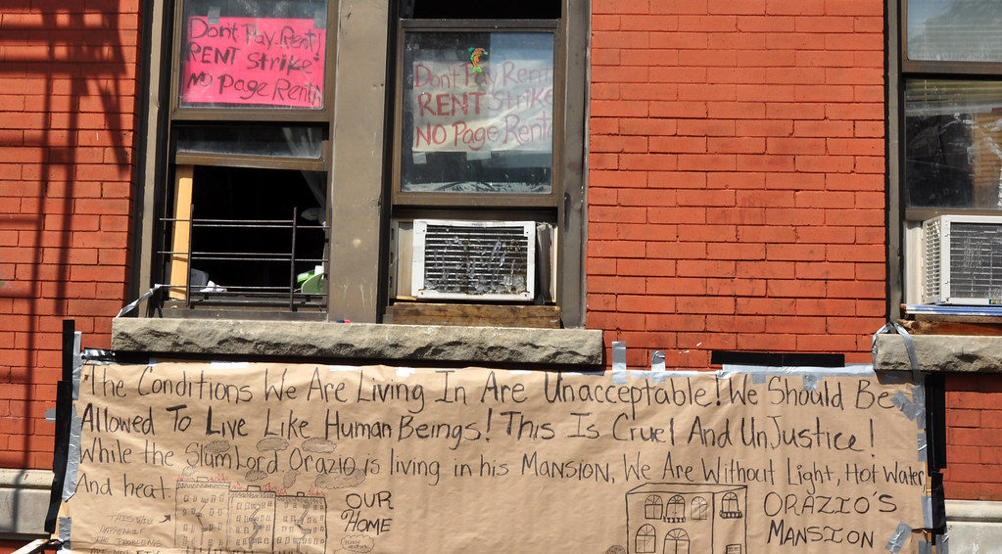 Dont Pay Rent!
RENT Strike
NO Page Rent!
Dont Pay Rent
RENT Strike
NO Page Rent
The Conditions We Are Living In Are Unacceptable! We Should Be
Allowed To Live Like Human Beings! This Is Cruel And UnJustice!
While the Slumlord Orazio is living in his MANSION, We Are Without Light, Hot Water,
And heat.
OUR
Home
ORAZIO'S
MANSION
THIS WILL
HAPPEN IF
THE PROBLEMS
ARE NOT